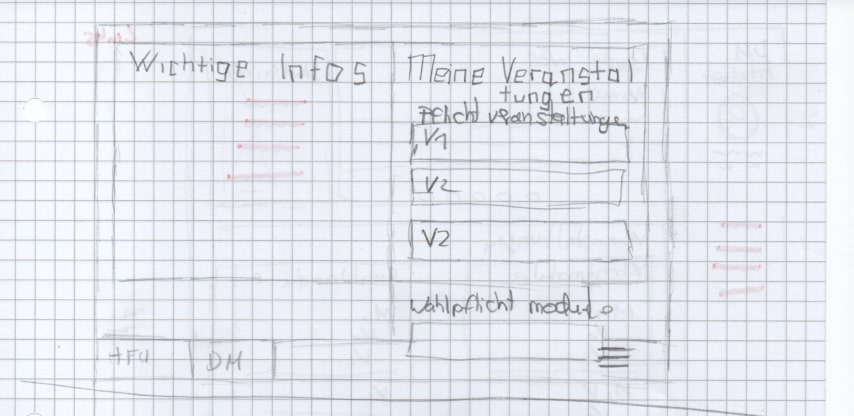 Wichtige Infos
Meine Veranstal
tungen
Pflichtveranstaltungen
V1
V2
V2
Wahlpflicht module
HFU
DM